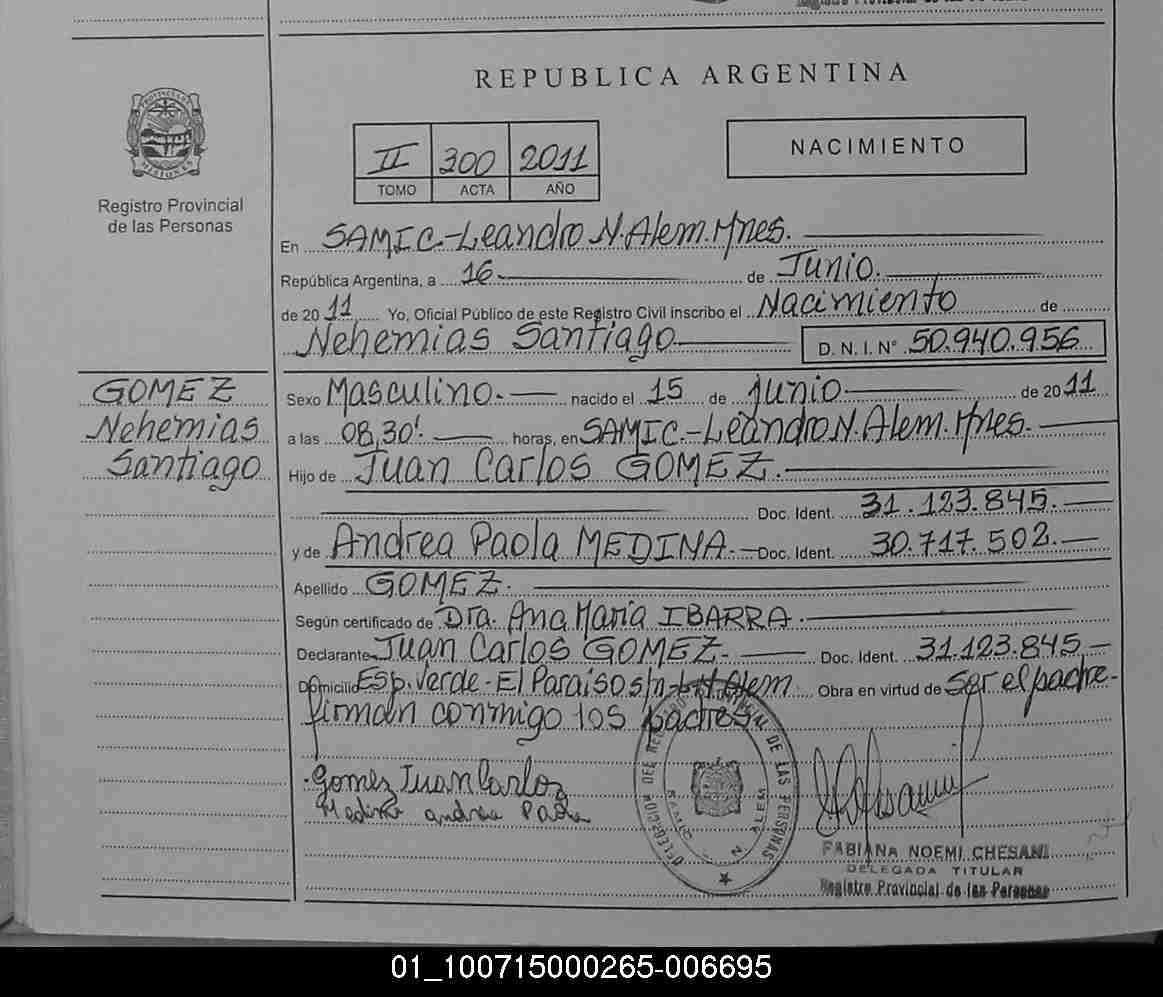 REPUBLICA ARGENTINA
PROVINCIA DE MISIONES
Registro Provincial
de las Personas
II 300 2011
TOMO ACTA AÑO
NACIMIENTO
En SAMIC-Leandro N. Alem. Mnes.
República Argentina, a 16 de Junio.
de 2011 Yo, Oficial Público de este Registro Civil inscribo el Nacimiento de
Nehemias Santiago D. N. I. N° 50.940.956
GOMEZ
Nehemias
Santiago
Sexo Masculino. nacido el 15 de junio de 2011
a las 08,30'. horas, en SAMIC.-Leandro N. Alem. Mnes.
Hijo de Juan Carlos GOMEZ.
Doc. Ident. 31.123.845.
y de Andrea Paola MEDINA. Doc. Ident. 30.717.502.
Apellido GOMEZ.
Según certificado de Dra. Ana María IBARRA.
Declarante Juan Carlos GOMEZ. Doc. Ident. 31.123.845,
Domicilio Esp. Verde-El Paraíso s/n-L.N.Alem Obra en virtud de ser el padre-
firman conmigo los padres
Gomez Juan Carlos
Medina andrea Paola
DELEGACION DEL REGISTRO PROVINCIAL DE LAS PERSONAS
SAMIC N. ALEM
FABIANA NOEMI CHESANI
DELEGADA TITULAR
Registro Provincial de las Personas
01_100715000265-006695